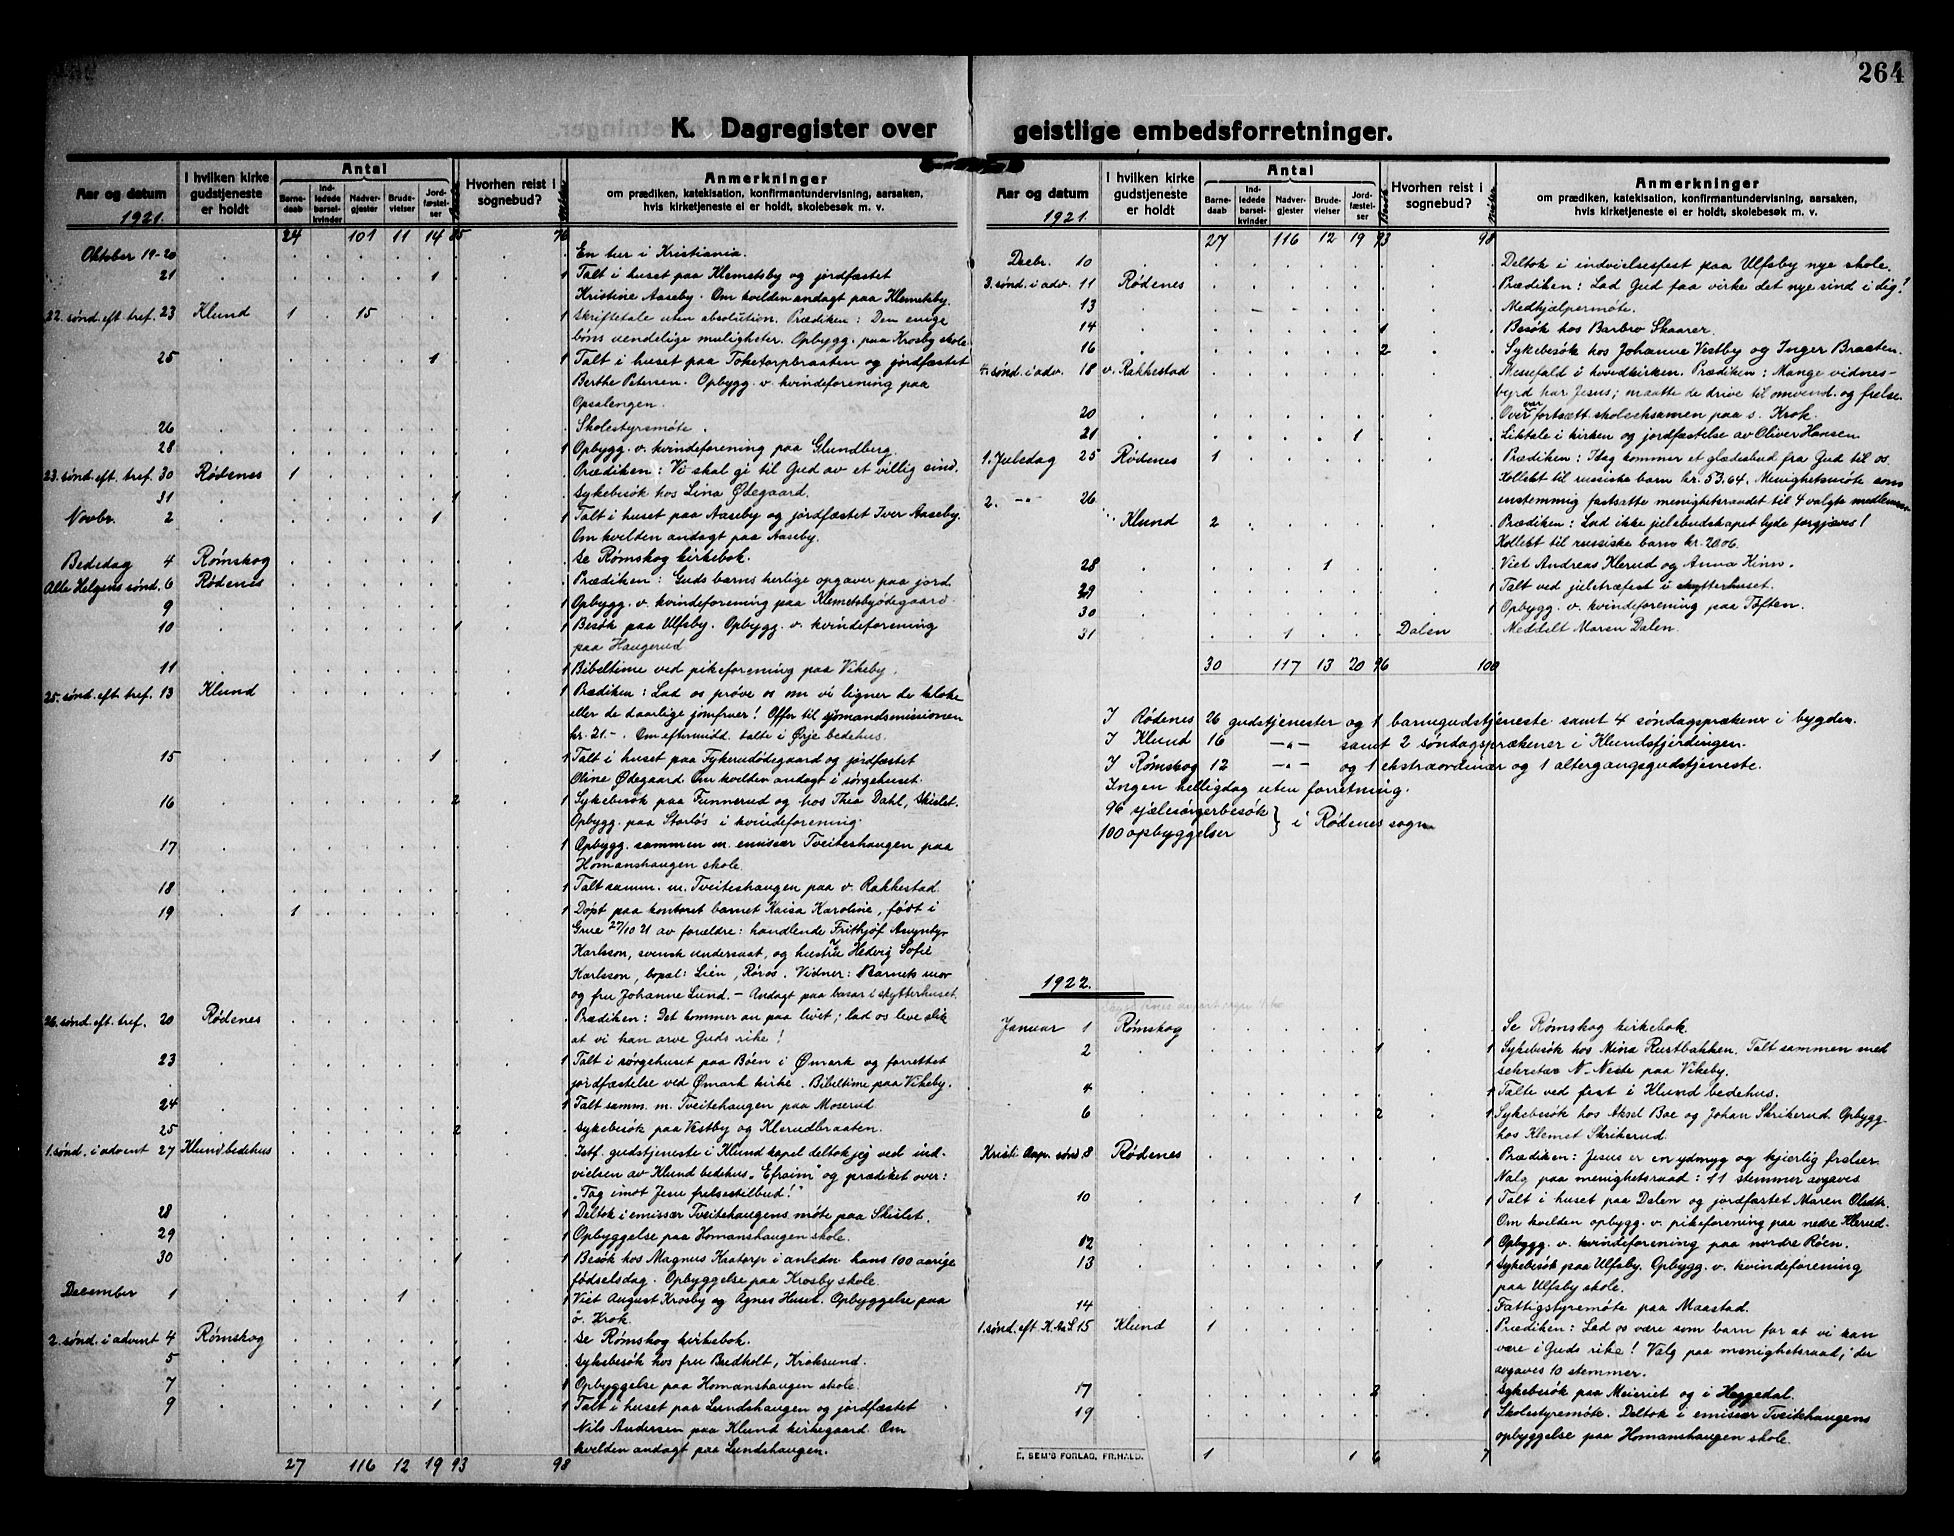 264
K. Dagregister over geistlige embedsforretninger.
Aar og datum
1921.
I hvilken kirke gudstjeneste er holdt
Antal
Barnedaab
Inledede barselkvinder
Nadvergjester
Brudevielser
Jordfæstelser
Hvorhen reist i sognebud?
Anmerkninger
om prædiken, katekisation, konfirmantundervisning, aarsaken, hvis kirketjeneste ei er holdt, skolebesøk m. v.
24 101 11 14 85 76
Oktober 19-20 En tur i Kristiania.
21 1 1 Talt i huset paa Klemetsby og jordfæstet
Kristine Aaseby. Om kvilden andagt paa Klemetsby.
22. sønd. eft. tref. 23 Klund 1 15 1 Skriftetale uten absolution. Prædiken: Den enige
bøns uendelige muligheter. Opbygg. paa Krosby skole.
25 1 1 Talt i huset paa Toketorpbraaten og jordfæstet
Berthe Petersen. Opbygg. v. kvindeforening paa
Opsalengen.
26 Skolestyrsmøte.
28 1 Opbygg. v. kvindeforening paa Glundberg.
23. sønd. eft. tref. 30 Rødenes 1 Prædiken: Vi skal gi til Gud av et villig sind.
31 1 Sykebesøk hos Lina Ødegaard.
Novbr. 2 1 1 Talt i huset paa Aaseby og jordfæstet Iver Aaseby.
Om kvilden andagt paa Aaseby.
Bededag 4 Rømskog Se Rømskog kirkebok.
Alle Helgens sønd. 6 Rødenes Prædiken: Guds barns herlige opgaver paa jord.
9 1 Opbygg. v. kvindeforening paa Klemetsbyødegaard.
10 1 1 Besøk paa Ulfsby. Opbygg. v. kvindeforening
paa Haugerud
11 1 Bibeltime ved pikeforening paa Vikeby.
25. sønd. eft. tref. 13 Klund 1 Prædiken: Lad os prøve os om vi ligner de kloke
eller de daarlige jomfruer! Offer til sjømandsmissionen
kr. 21.-. Om eftermidd. talte i Ørje bedehus.
15 1 1 Talt i huset paa Fykerudødegaard og jordfæstet
Oline Ødegaard. Om kvilden andagt i sørgehuset.
16 2 1 Sykebesøk paa Tunnerud og hos Thea Dahl, Skislet.
Opbygg. paa Storløs i kvindeforening.
17 1 Opbygg. sammen m. emissær Tveitehaugen paa
Homanshaugen skole.
18 1 Talt samm. m. Tveitehaugen paa v. Rakkestad.
19 1 1 Døpt paa kontoret barnet Kaisa Karoline, født i
Grue 27/10 21 av forældre: handlende Frithjof
Karlsson, svensk undersaat, og hustru Hedvig Sofie
Karlsson, bopæl: Lien, Røros. Vidner: Barnets mor
og fru Johanne Lund. - Andagt paa basar i skytterhuset.
26. sønd. eft. tref. 20 Rødenes Prædiken: Det kommer an paa livet; lad os leve slik
at vi kan arve Guds rike!
23 1 Talt i sørgehuset paa Bøen i Ømark og forrettet
jordfæstelse ved Ømark kirke. Bibeltime paa Vikeby.
24 1 Talt samm. m. Tveitehaugen paa Moserud
25 2 Sykebesøk paa Vestby og Klerudbraaten.
1. sønd. i advent 27 Klund bedehus Istf. gudstjeneste i Klund kapel deltok jeg ved ind-
vielsen av Klund bedehus „Efraim" og prædiket over:
„Tag imot Jesu frelsestilbud!"
28 1 Deltok i emissær Tveitehaugens møte paa Skislet.
29 1 Opbyggelse paa Homanshaugen skole.
30 1 1 Besøk hos Magnus Kaatorp i anledn. hans 100 aarige
fødselsdag. Opbyggelse paa Krosby skole.
December 1 1 1 Viet August Krosby og Agnes Huset. Opbyggelse paa
ø. Krok.
2. sønd. i advent 4 Rømskog Se Rømskog kirkebok.
5 1 Sykebesøk hos fru Budholt, Kroksund.
7 1 Opbyggelse paa Homanshaugen skole.
9 1 1 Talt i huset paa Lundshaugen og jordfæstet
Nils Andersen paa Klund kirkegaard. Om
kvelden andagt paa Lundshaugen.
27 116 12 19 93 98
Aar og datum
1921.
I hvilken kirke gudstjeneste er holdt
Antal
Barnedaab
Inledede barselkvinder
Nadvergjester
Brudevielser
Jordfæstelser
Hvorhen reist i sognebud?
Anmerkninger
om prædiken, katekisation, konfirmantundervisning, aarsaken, hvis kirketjeneste ei er holdt, skolebesøk m. v.
27 116 12 19 93 98
Decbr. 10 Deltok i indvielsesfest paa Ulfsby nye skole.
3. sønd. i adv. 11 Rødenes Prædiken: Lad Gud faa virke det nye sind i dig!
13 Medhjælpermøte.
14 1 Besøk hos Barbro Skaarer.
16 2 Sykebesøk hos Johanne Vestby og Inger Braaten.
4. sønd. i adv. 18 v. Rakkestad Messefald i hovedkirken. Prædiken: Mange vidnes-
byrd har Jesus; maatte de drive til omvend. og frelse.
20 Overvar fortsætt. skoleeksamen paa s. Krok.
21 1 Liktale i kirken og jordfæstelse av Oliver Hansen
1. Juledag 25 Rødenes 1 Prædiken: Idag kommer et glædesbud fra Gud til os.
Kollekt til russiske barn kr. 53.64. Menighetsmøte som
2. -"- 26 enstemmig fastsætte menighetsraadet til 4 valgte medlemmer
Klund 2 Prædiken: Lad ikke julebudskapet lyde forgjæves!
Kollekt til russiske barn kr. 20.06.
28 1 Viet Andreas Klerud og Anna Kinn.
29 1 Talt ved juletræfest i skytterhuset.
30 1 Opbygg. v. kvindeforening paa Toften.
31 1 Dalen Meddelt Maren Dalen.
30 117 13 20 96 100
I Rødenes 26 gudstjenester og 1 barnegudstjeneste samt 4 søndagsprækener i bygden.
I Klund 16 -"- samt 2 søndagsprækener i Klundsfjerdingen.
I Rømskog 12 -"- og 1 ekstraordinær og 1 altergangsgudstjeneste.
Ingen helligdag uten forretning.
96 sjælesørgerbesøk
100 opbyggelser } i Rødenes sogn
1922.
Januar 1 Rømskog Se Rømskog kirkebok
2 1 1 Sykebesøk hos Mina Rustbakken. Talt sammen med
sekretær N. Neste paa Vikeby.
4 1 Talte ved fest i Klund bedehus.
6 2 1 Sykebesøk hos Aksel Boe og Johan Skrikerud. Opbygg.
hos Klemet Skrikerud.
Kristi Aap. sønd. 8 Rødenes Prædiken: Jesus er en ydmyg og kjærlig frelser.
Valg paa menighetsraad: 11 stemmer avgaves
10 1 1 Talt i huset paa Dalen og jordfæstet Maren Olsdtr.
Om kvilden opbygg. v. pikeforening paa nedre Klerud.
12 1 Opbygg. v. kvindeforening paa nordre Røen.
13 1 1 Sykebesøk paa Ulfsby. Opbygg. v. kvindeforening
paa Ulfsby skole.
14 Fattigstyremøte paa Maastad.
1. sønd. eft. K. Aa. S. 15 Klund 1 Prædiken: Lad os være som barn for at vi kan
være i Guds rike! Valg paa menighetsraad; der
avgaves 10 stemmer.
17 2 Sykebesøk paa Meieriet og i Heggedal.
19 1 Skolestyremøte. Deltok i emissær Tveitehaugens
opbyggelse paa Homanshaugen skole.
1 1 6 7
E. SEM'S FORLAG, FR.HALD.